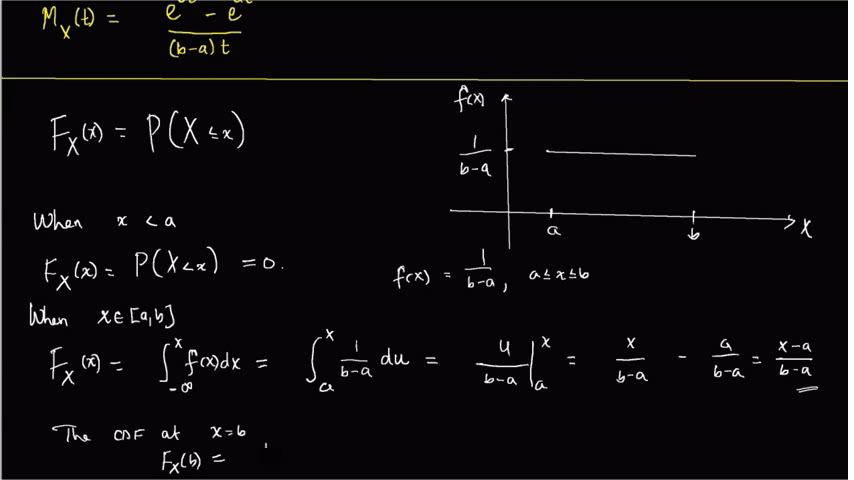 M_X(t) = (e^{bt} - e^{at}) / ((b-a)t)
F_X(x) = P(X ≤ x)
f(x)
1/(b-a)
a b X
When x < a
F_X(x) = P(X < x) = 0.
f(x) = 1/(b-a), a ≤ x ≤ b
When x ∈ [a,b]
F_X(x) = ∫_{-∞}^{x} f(x)dx = ∫_a^x 1/(b-a) du = u/(b-a) |_a^x = x/(b-a) - a/(b-a) = (x-a)/(b-a)
The CDF at x=b
F_X(b) =